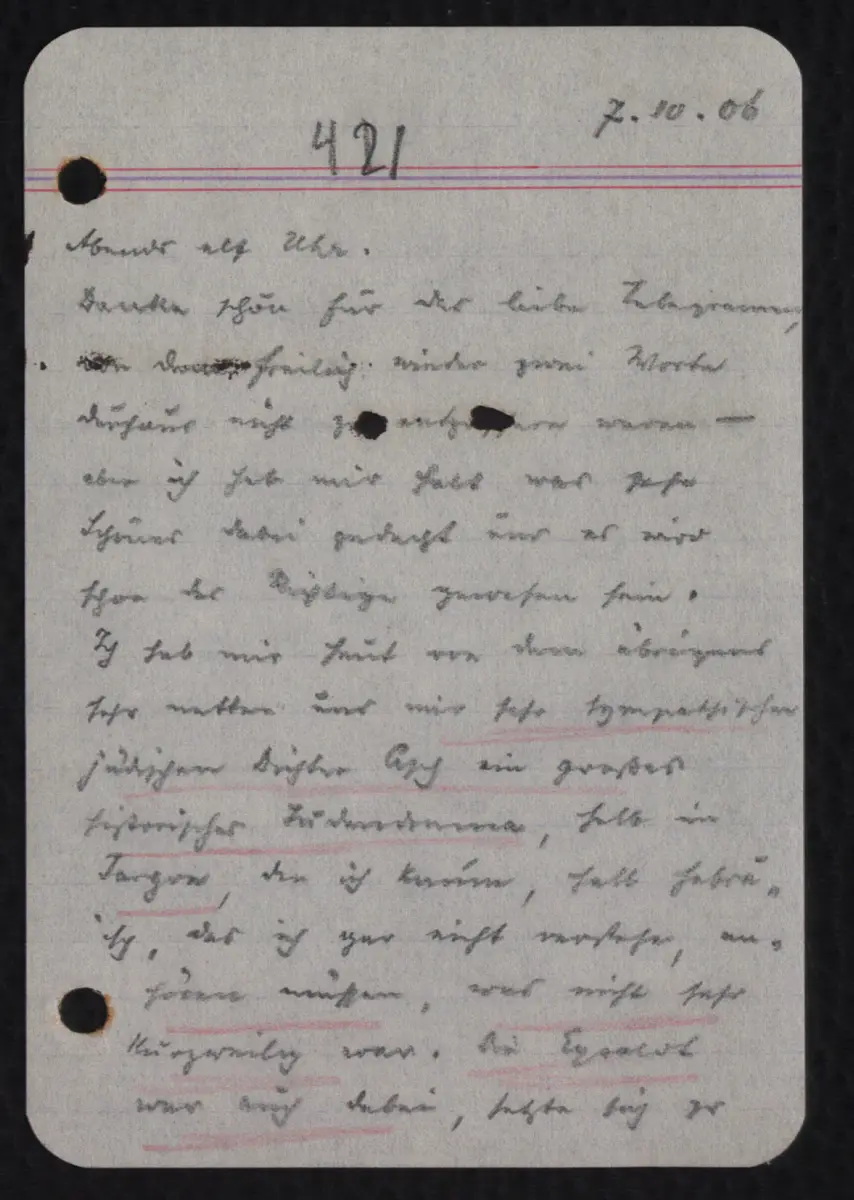 421
7.10.06
Abends elf Uhr.
Danke schön für das liebe Telegramm,
von dem freilich wieder zwei Worte
durchaus nicht zu entziffern waren —
aber ich hab mir halt was sehr
Schönes dabei gedacht und es wird
schon das Richtige gewesen sein.
Ich hab mir heut von dem übrigens
sehr netten und mir sehr sympathischen
jüdischen Dichter Asch ein großes
historisches Judendrama, halb in
Jargon, den ich kaum, halb hebrä„
isch, das ich gar nicht verstehe, an„
hören müssen, was nicht sehr
kurzweilig war. Die Eysoldt
war auch dabei, setzte sich zu